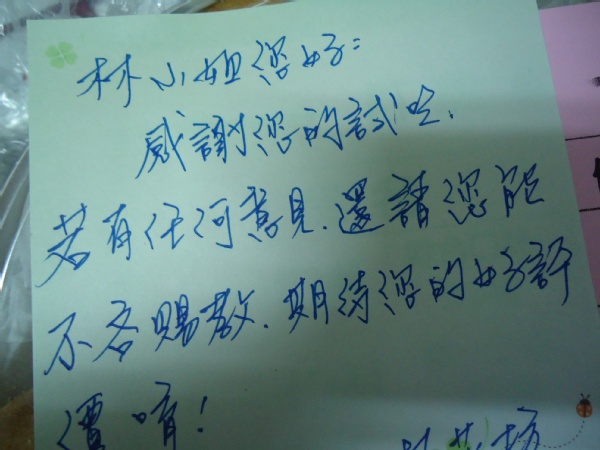 林小姐您好：
感謝您的試吃.
若有任何意見.還請您能
不吝賜教.期待您的好評
價唷！